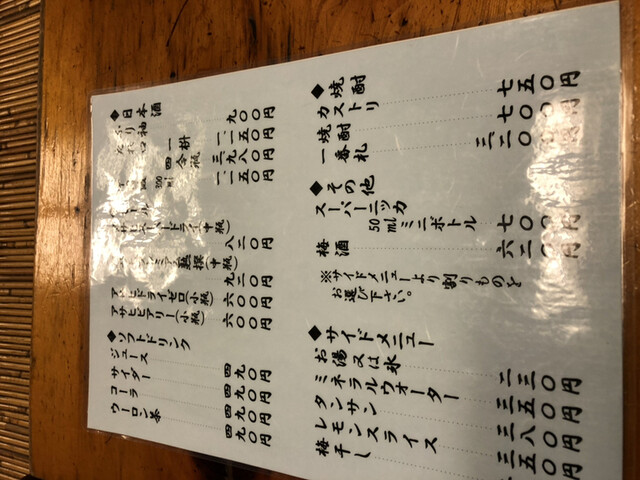 ◆日本酒
ふり袖 九〇〇円
たれ口 一合枡 一、一五〇円
四合瓶 三、九八〇円
300ml 一、一五〇円
ール
アサヒスーパードライ(中瓶)
八二〇円
熟撰(中瓶)
九二〇円
アサヒドライゼロ(小瓶) 六〇〇円
アサヒビアリー(小瓶) 六〇〇円
◆ソフトドリンク
ジュース 四九〇円
サイダー 四九〇円
コーラ 四九〇円
ウーロン茶 四九〇円
◆焼酎
カストリ 七五〇円
焼酎 七〇〇円
一番札
◆その他
スーパーニッカ
50mlミニボトル 七〇〇円
梅酒 六二〇円
※サイドメニューより割りものを
お選び下さい。
◆サイドメニュー
お湯又は氷 二三〇円
ミネラルウォーター 三五〇円
タンサン 二八〇円
レモンスライス 三五〇円
梅干し